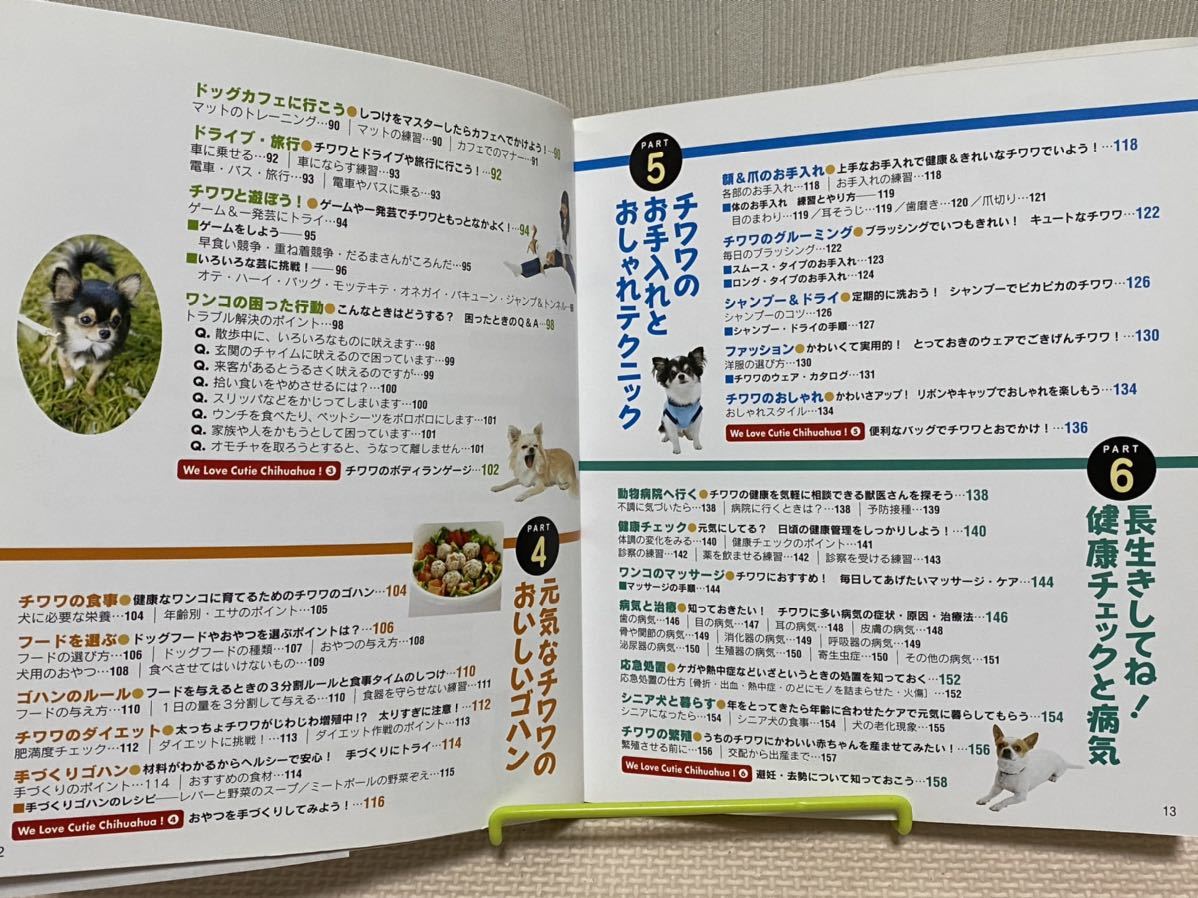 ドッグカフェに行こう●しつけをマスターしたらカフェへでかけよう!…90
マットのトレーニング…90 | マットの練習…90 | カフェでのマナー…91
ドライブ・旅行●チワワとドライブや旅行に行こう!…92
車に乗せる…92 | 車にならす練習…93
電車・バス・旅行…93 | 電車やバスに乗る…93
チワワと遊ぼう!●ゲームや一発芸でチワワともっとなかよく!…94
ゲーム&一発芸にトライ…94
■ゲームをしよう——95
早食い競争・重ね着競争・だるまさんがころんだ…95
■いろいろな芸に挑戦!——96
オテ・ハーイ・バッグ・モッテキテ・オネガイ・バキューン・ジャンプ&トンネル…
ワンコの困った行動●こんなときはどうする? 困ったときのQ&A…98
トラブル解決のポイント…98
Q. 散歩中に、いろいろなものに吠えます…98
Q. 玄関のチャイムに吠えるので困っています…99
Q. 来客があるとうるさく吠えるのですが…99
Q. 拾い食いをやめさせるには?…100
Q. スリッパなどをかじってしまいます…100
Q. ウンチを食べたり、ペットシーツをボロボロにします…101
Q. 家族や人をかもうとして困っています…101
Q. オモチャを取ろうとすると、うなって離しません…101
We Love Cutie Chihuahua! 3 チワワのボディランゲージ…102
PART 4
元気なチワワの
おいしいゴハン
チワワの食事●健康なワンコに育てるためのチワワのゴハン…104
犬に必要な栄養…104 | 年齢別・エサのポイント…105
フードを選ぶ●ドッグフードやおやつを選ぶポイントは?…106
フードの選び方…106 | ドッグフードの種類…107 | おやつの与え方…108
犬用のおやつ…108 | 食べさせてはいけないもの…109
ゴハンのルール●フードを与えるときの3分割ルールと食事タイムのしつけ…110
フードの与え方…110 | 1日の量を3分割して与える…110 | 食器を守らせない練習…111
チワワのダイエット●太っちょチワワがじわじわ増殖中!? 太りすぎに注意!…112
肥満度チェック…112 | ダイエットに挑戦!…113 | ダイエット作戦のポイント…113
手づくりゴハン●材料がわかるからヘルシーで安心! 手づくりにトライ…114
手づくりのポイント…114 | おすすめの食材…114
■手づくりゴハンのレシピ——レバーと野菜のスープ/ミートボールの野菜ぞえ…115
We Love Cutie Chihuahua! 4 おやつを手づくりしてみよう!…116
2
PART 5
チワワの
お手入れと
おしゃれテクニック
顔&爪のお手入れ●上手なお手入れで健康&きれいなチワワでいよう!…118
各部のお手入れ…118 | お手入れの練習…118
■体のお手入れ 練習とやり方——119
目のまわり…119/耳そうじ…119/歯磨き…120/爪切り…121
チワワのグルーミング●ブラッシングでいつもきれい! キュートなチワワ…122
毎日のブラッシング…122
■スムース・タイプのお手入れ…123
■ロング・タイプのお手入れ…124
シャンプー&ドライ●定期的に洗おう! シャンプーでピカピカのチワワ…126
シャンプーのコツ…126
■シャンプー・ドライの手順…127
ファッション●かわいくて実用的! とっておきのウェアでごきげんチワワ!…130
洋服の選び方…130
■チワワのウェア・カタログ…131
チワワのおしゃれ●かわいさアップ! リボンやキャップでおしゃれを楽しもう…134
おしゃれスタイル…134
We Love Cutie Chihuahua! 5 便利なバッグでチワワとおでかけ!…136
PART 6
長生きしてね!
健康チェックと病気
動物病院へ行く●チワワの健康を気軽に相談できる獣医さんを探そう…138
不調に気づいたら…138 | 病院に行くときは?…138 | 予防接種…139
健康チェック●元気にしてる? 日頃の健康管理をしっかりしよう!…140
体調の変化をみる…140 | 健康チェックのポイント…141
診察の練習…142 | 薬を飲ませる練習…142 | 診察を受ける練習…143
ワンコのマッサージ●チワワにおすすめ! 毎日してあげたいマッサージ・ケア…144
■マッサージの手順…144
病気と治療●知っておきたい! チワワに多い病気の症状・原因・治療法…146
歯の病気…146 | 目の病気…147 | 耳の病気…148 | 皮膚の病気…148
骨や関節の病気…149 | 消化器の病気…149 | 呼吸器の病気…149
泌尿器の病気…150 | 生殖器の病気…150 | 寄生虫症…150 | その他の病気…151
応急処置●ケガや熱中症などいざというときの処置を知っておく…152
応急処置の仕方[骨折・出血・熱中症・のどにモノを詰まらせた・火傷]…152
シニア犬と暮らす●年をとってきたら年齢に合わせたケアで元気に暮らしてもらう…154
シニアになったら…154 | シニア犬の食事…154 | 犬の老化現象…155
チワワの繁殖●うちのチワワにかわいい赤ちゃんを産ませてみたい!…156
繁殖させる前に…156 | 交配から出産まで…157
We Love Cutie Chihuahua! 6 避妊・去勢について知っておこう…158
13